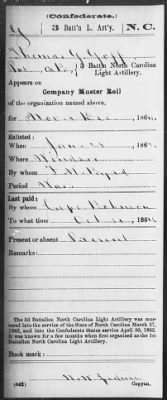 (Confederate.)
G | 3 Batt'n L. Art'y. | N. C.
Thomas J. Goff
3 Batt'n North Carolina
Light Artillery.
Appears on
Company Muster Roll
of the organization named above,
for Nov & Dec, 1864.
Enlisted:
When Jan 28, 186
Where Windsor
By whom
Period War
Last paid:
By whom Capt
To what time Oct, 1864
Present or absent Present
Remarks:
The 3d Battalion North Carolina Light Artillery was mus-
tered into the service of the State of North Carolina March 27,
1862, and into the Confederate States service April 30, 1862.
It was known for a few months when first organized as the 1st
Battalion North Carolina Light Artillery.
Book mark:
(642)
Copyist.